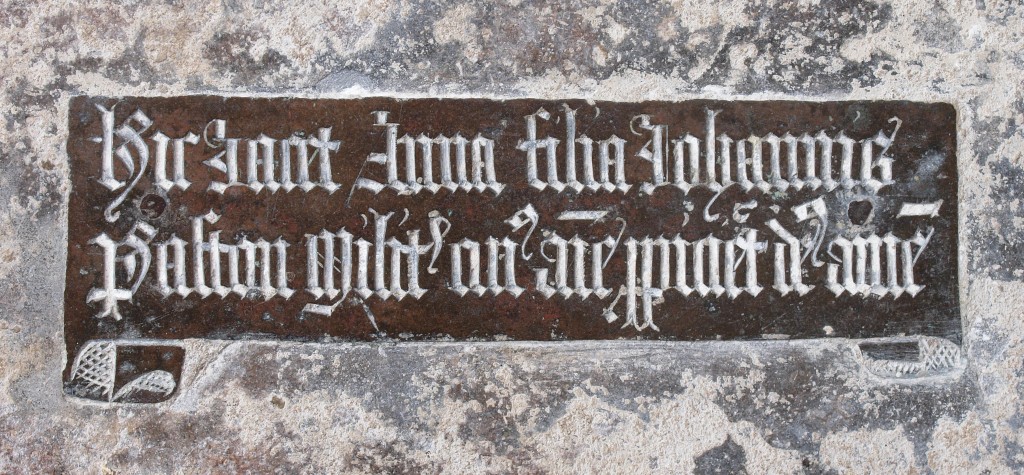 Hic Jacet Anna filia Johannis
Paston Milit' cui' aīe ppiciet' de' amē